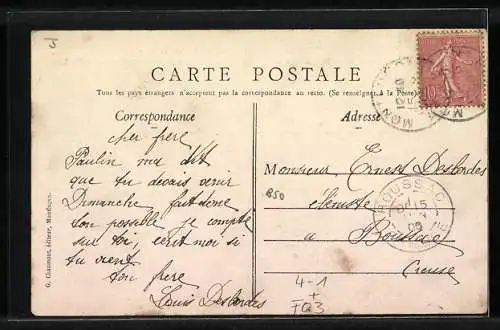 J
CARTE POSTALE
Tous les pays étrangers n'acceptent pas la correspondance au recto. (Se renseigner à la Poste)
Correspondance
Adresse
cher frere
Paulin ma dit
que tu devais venir
Dimanche fait donc
ton possible je compte
sur toi, ecrit moi si
tu vient
ton frere
Louis Desbordes
Monsieur Ernest Desbordes
a Boussac
Creuse
850
4-1
+
FQ3
10
MONT
BOUSSAC
15
G. Chaumont, éditeur, Montluçon.